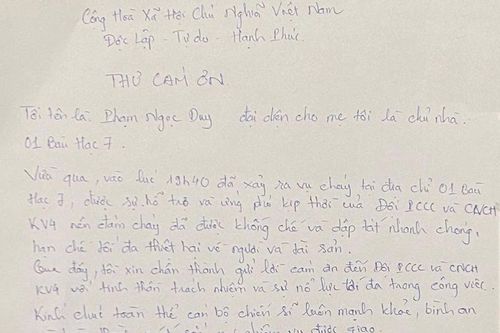 Cộng Hoà Xã Hội Chủ Nghĩa Việt Nam
Độc Lập - Tự do - Hạnh Phúc
THƯ CẢM ƠN
Tôi tên là: Phạm Ngọc Duy đại diện cho mẹ tôi là chủ nhà
01 Bàu Hạc 7.
Vừa qua, vào lúc 19h40 đã xảy ra vụ cháy tại địa chỉ 01 Bàu
Hạc 7, được sự hỗ trợ và ứng phó kịp thời của Đội PCCC và CNCH
KV4 nên đám cháy đã được khống chế và dập tắt nhanh chóng,
hạn chế tối đa thiệt hại về người và tài sản.
Qua đây, tôi xin chân thành gửi lời cảm ơn đến Đội PCCC và CNCH
KV4 với tinh thần trách nhiệm và sự nổ lực tối đa trong công việc.
Kính chúc toàn thể cán bộ chiến sĩ luôn mạnh khoẻ, bình an
được giao.